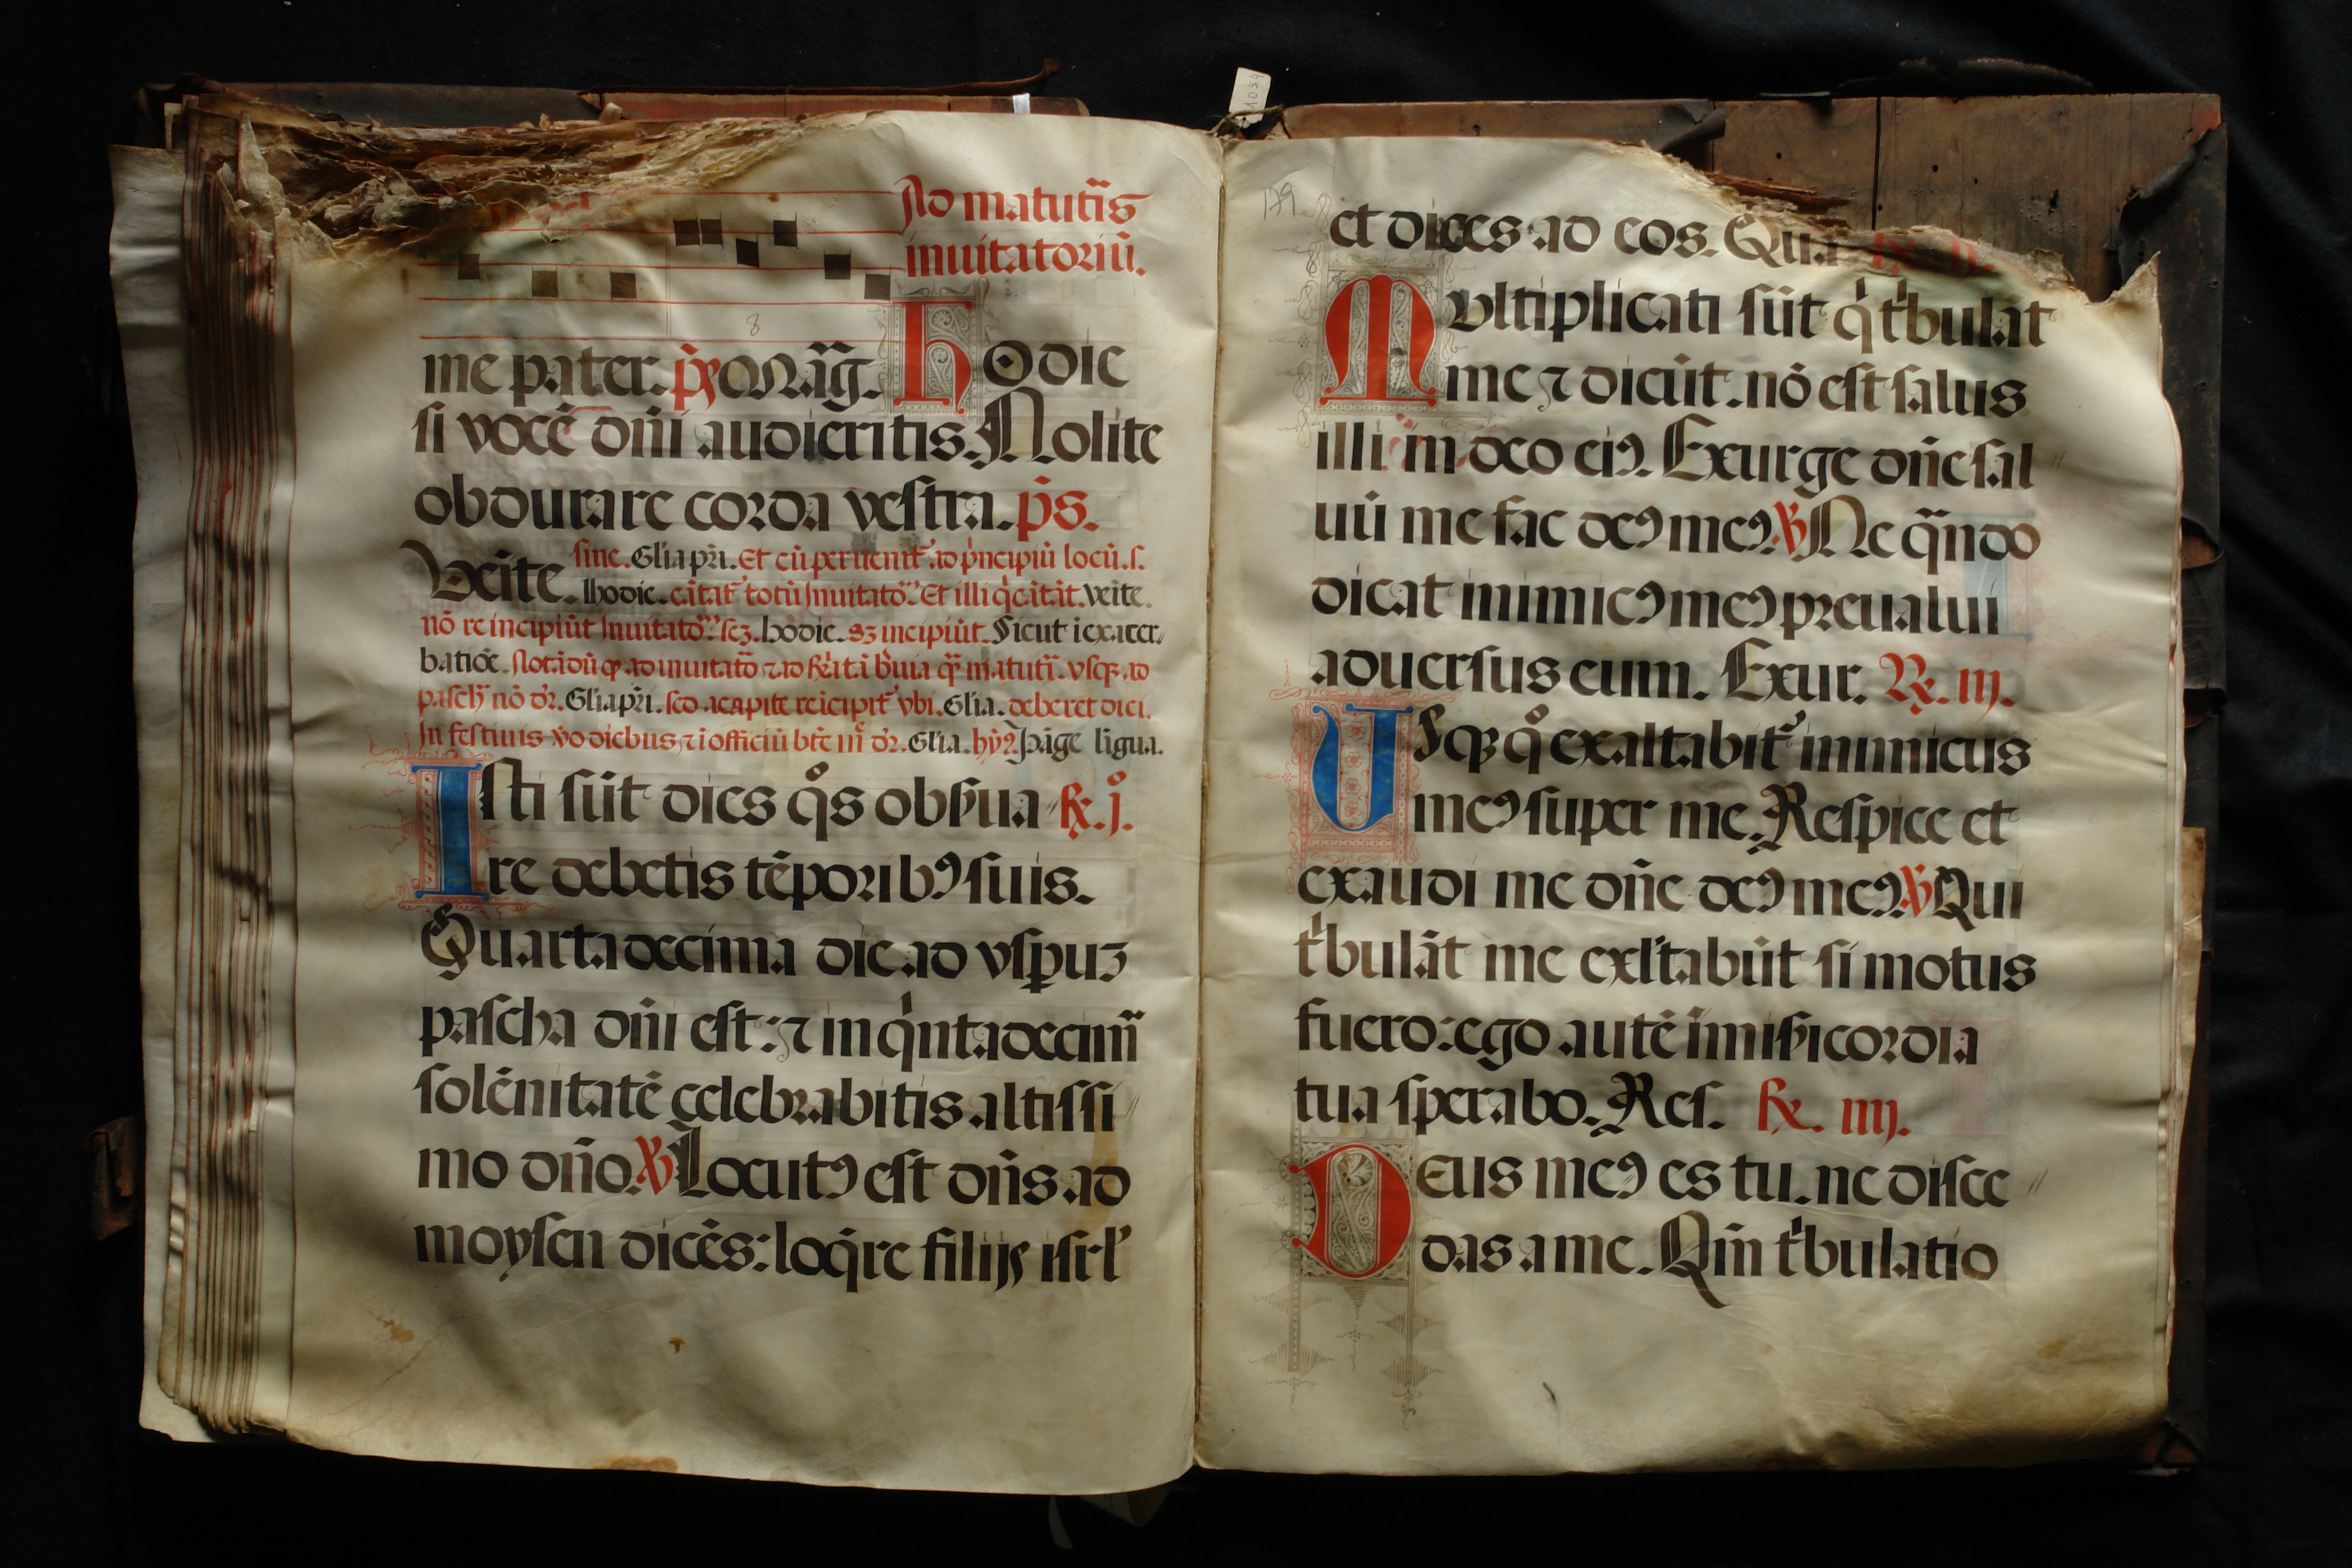 Ad matutīs
inuitatoriū.
8
me pater. p̄s Mag̅. Hodie
si vocē dn̄i audieritis. Nolite
obdurare corda vestra. p̄s.
Veīte. sine. Glīa pr̄i. Et cū peruenit᷑ ad p̍ncipiū locū. s.
hodie. cātat᷑ totū Inuitatoꝝ. Et illi q̍ cātāt. veīte.
nō reincipiūt Inuitatoꝝ. scꝫ. hodie. sꝫ incipiūt. Sicut ī exacer
batiōe. Notādū ꝙ ad inuitatō ⁊ ad
pasch̄ nō dr̄. Glīa pr̄i. sed a capite reīcipit᷑ vbi. Glīa. deberet dici.
In festiuis v̊o diebus ⁊ ī officiū bt̄e dr̄. Glīa. hy. Pāge līgua.
Isti sūt dies q̊s obẜua ℟. j̊.
re debetis tēporibꝰ suis.
Quartadecima die ad vsꝑuꝫ
pascha dn̄i est: ⁊ in q̍ntadecim̄
solēnitatē celebrabitis altissi
mo dn̄o. ℣ Locutꝰ est dn̄s ad
moysen dicēs: loq̄re filijs isrl̕
1054
179
et dices ad eos. Qua ℟. ij.
Multiplicati sūt q̍ t̍bulāt
me ⁊ dicūt. nō est salus
illi in deo eiꝰ. Exurge dn̄e sal
uū me fac deꝰ meꝰ. ℣ Ne qn̄do
dicat inimicꝰ meꝰ preualui
aduersus eum. Exur. ℟. iij.
Usqꝫ q̊ exaltabit᷑ inimicus
meꝰ super me. Respice et
exaudi me dn̄e deꝰ meꝰ. ℣ Qui
t̍bulāt me exl̕tabūt si motus
fuero: ego autē in miẜicordia
tua sperabo. Res. ℟. iiij.
Deus meꝰ es tu. ne disce
das a me. Qm̄ t̍bulatio